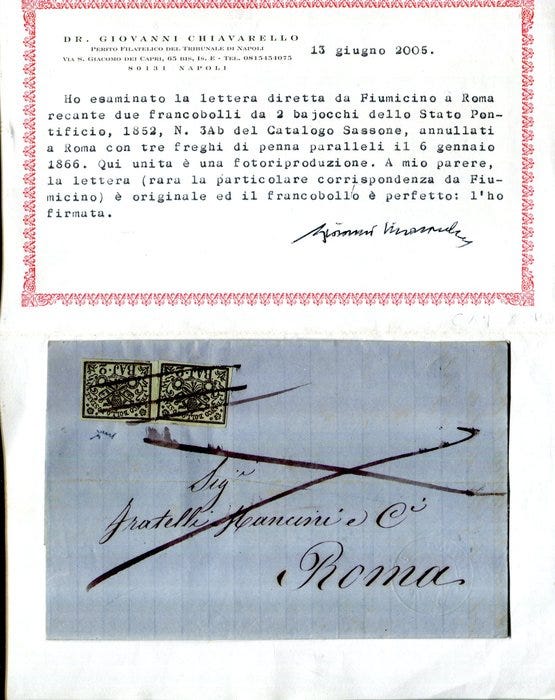 DR. GIOVANNI CHIAVARELLO
PERITO FILATELICO DEL TRIBUNALE DI NAPOLI
VIA S. GIACOMO DEI CAPRI, 65 BIS, IS. E - TEL. 0815454075
80131 NAPOLI
13 giugno 2005.
Ho esaminato la lettera diretta da Fiumicino a Roma
recante due francobolli da 2 bajocchi dello Stato Pon-
tificio, 1852, N. 3Ab del Catalogo Sassone, annullati
a Roma con tre freghi di penna paralleli il 6 gennaio
1866. Qui unita è una fotoriproduzione. A mio parere,
la lettera (rara la particolare corrispondenza da Fiu-
micino) è originale ed il francobollo è perfetto: l'ho
firmata.
BAJ. 2
BAJ. 2
Sigri
Fratelli Mancini e Ci
Roma